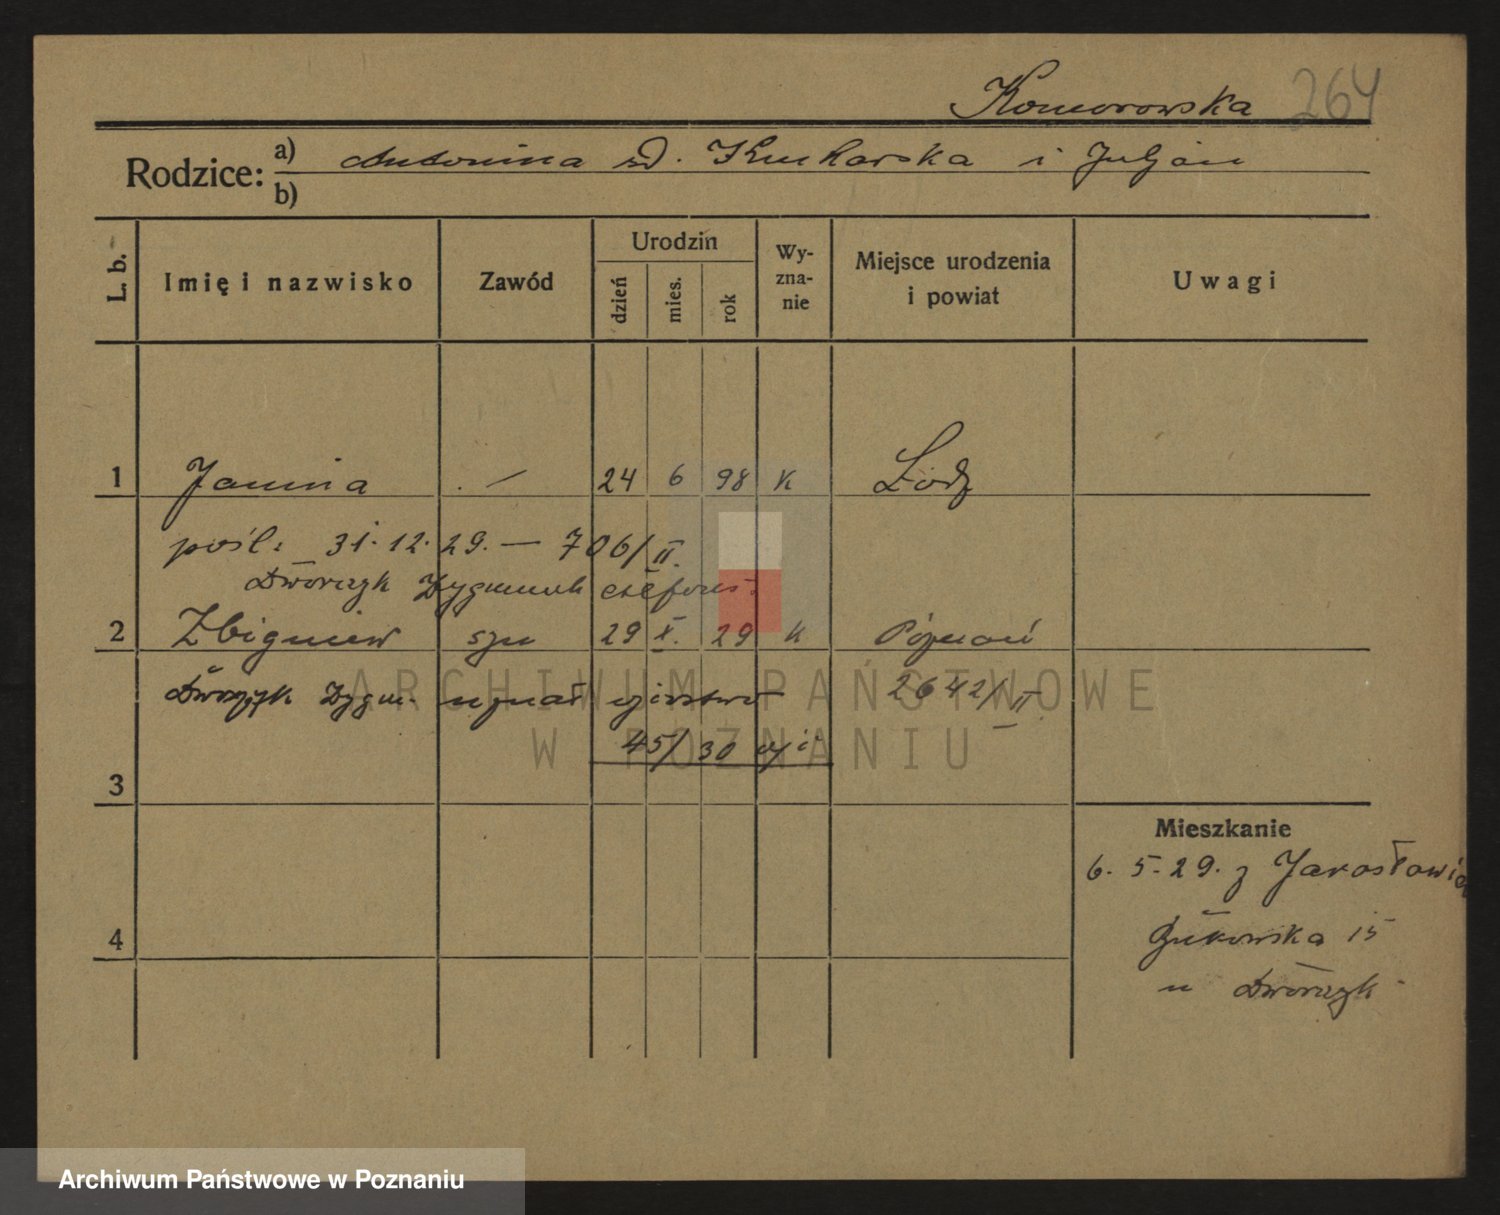 Komorowska 264
Rodzice: a) Antonina zd. Kucharska i Juljan
b)
L. b.
Imię i nazwisko
Zawód
Urodzin
dzień
mies.
rok
Wy-
zna-
nie
Miejsce urodzenia
i powiat
Uwagi
1 Janina . — 24 6 98 K Łódź
pośl: 31.12.29. — 706/II.
Dworczyk Zygmunt
2 Zbigniew syn 29 X. 29 K Poznań
Dworczyk Zygm. uznał ojcostwo 2642/II
45/30
3
Mieszkanie
6. 5. 29. z Jarosławic
4
Żukowska 15
u Dworczyk
ARCHIWUM PAŃSTWOWE
W POZNANIU
Archiwum Państwowe w Poznaniu